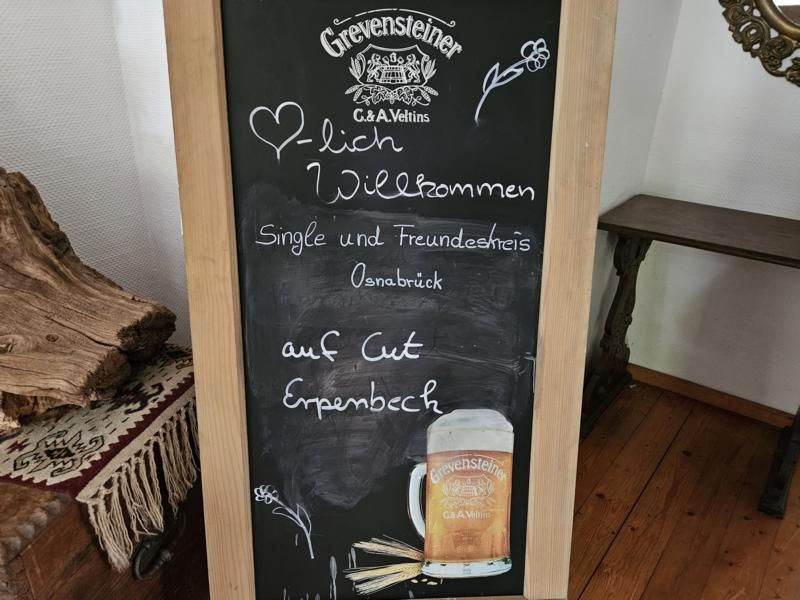 Grevensteiner
C. & A. Veltins
♡-lich
Willkommen
Single und Freundeskreis
Osnabrück
auf Gut
Erpenbeck
Grevensteiner
C. & A. Veltins